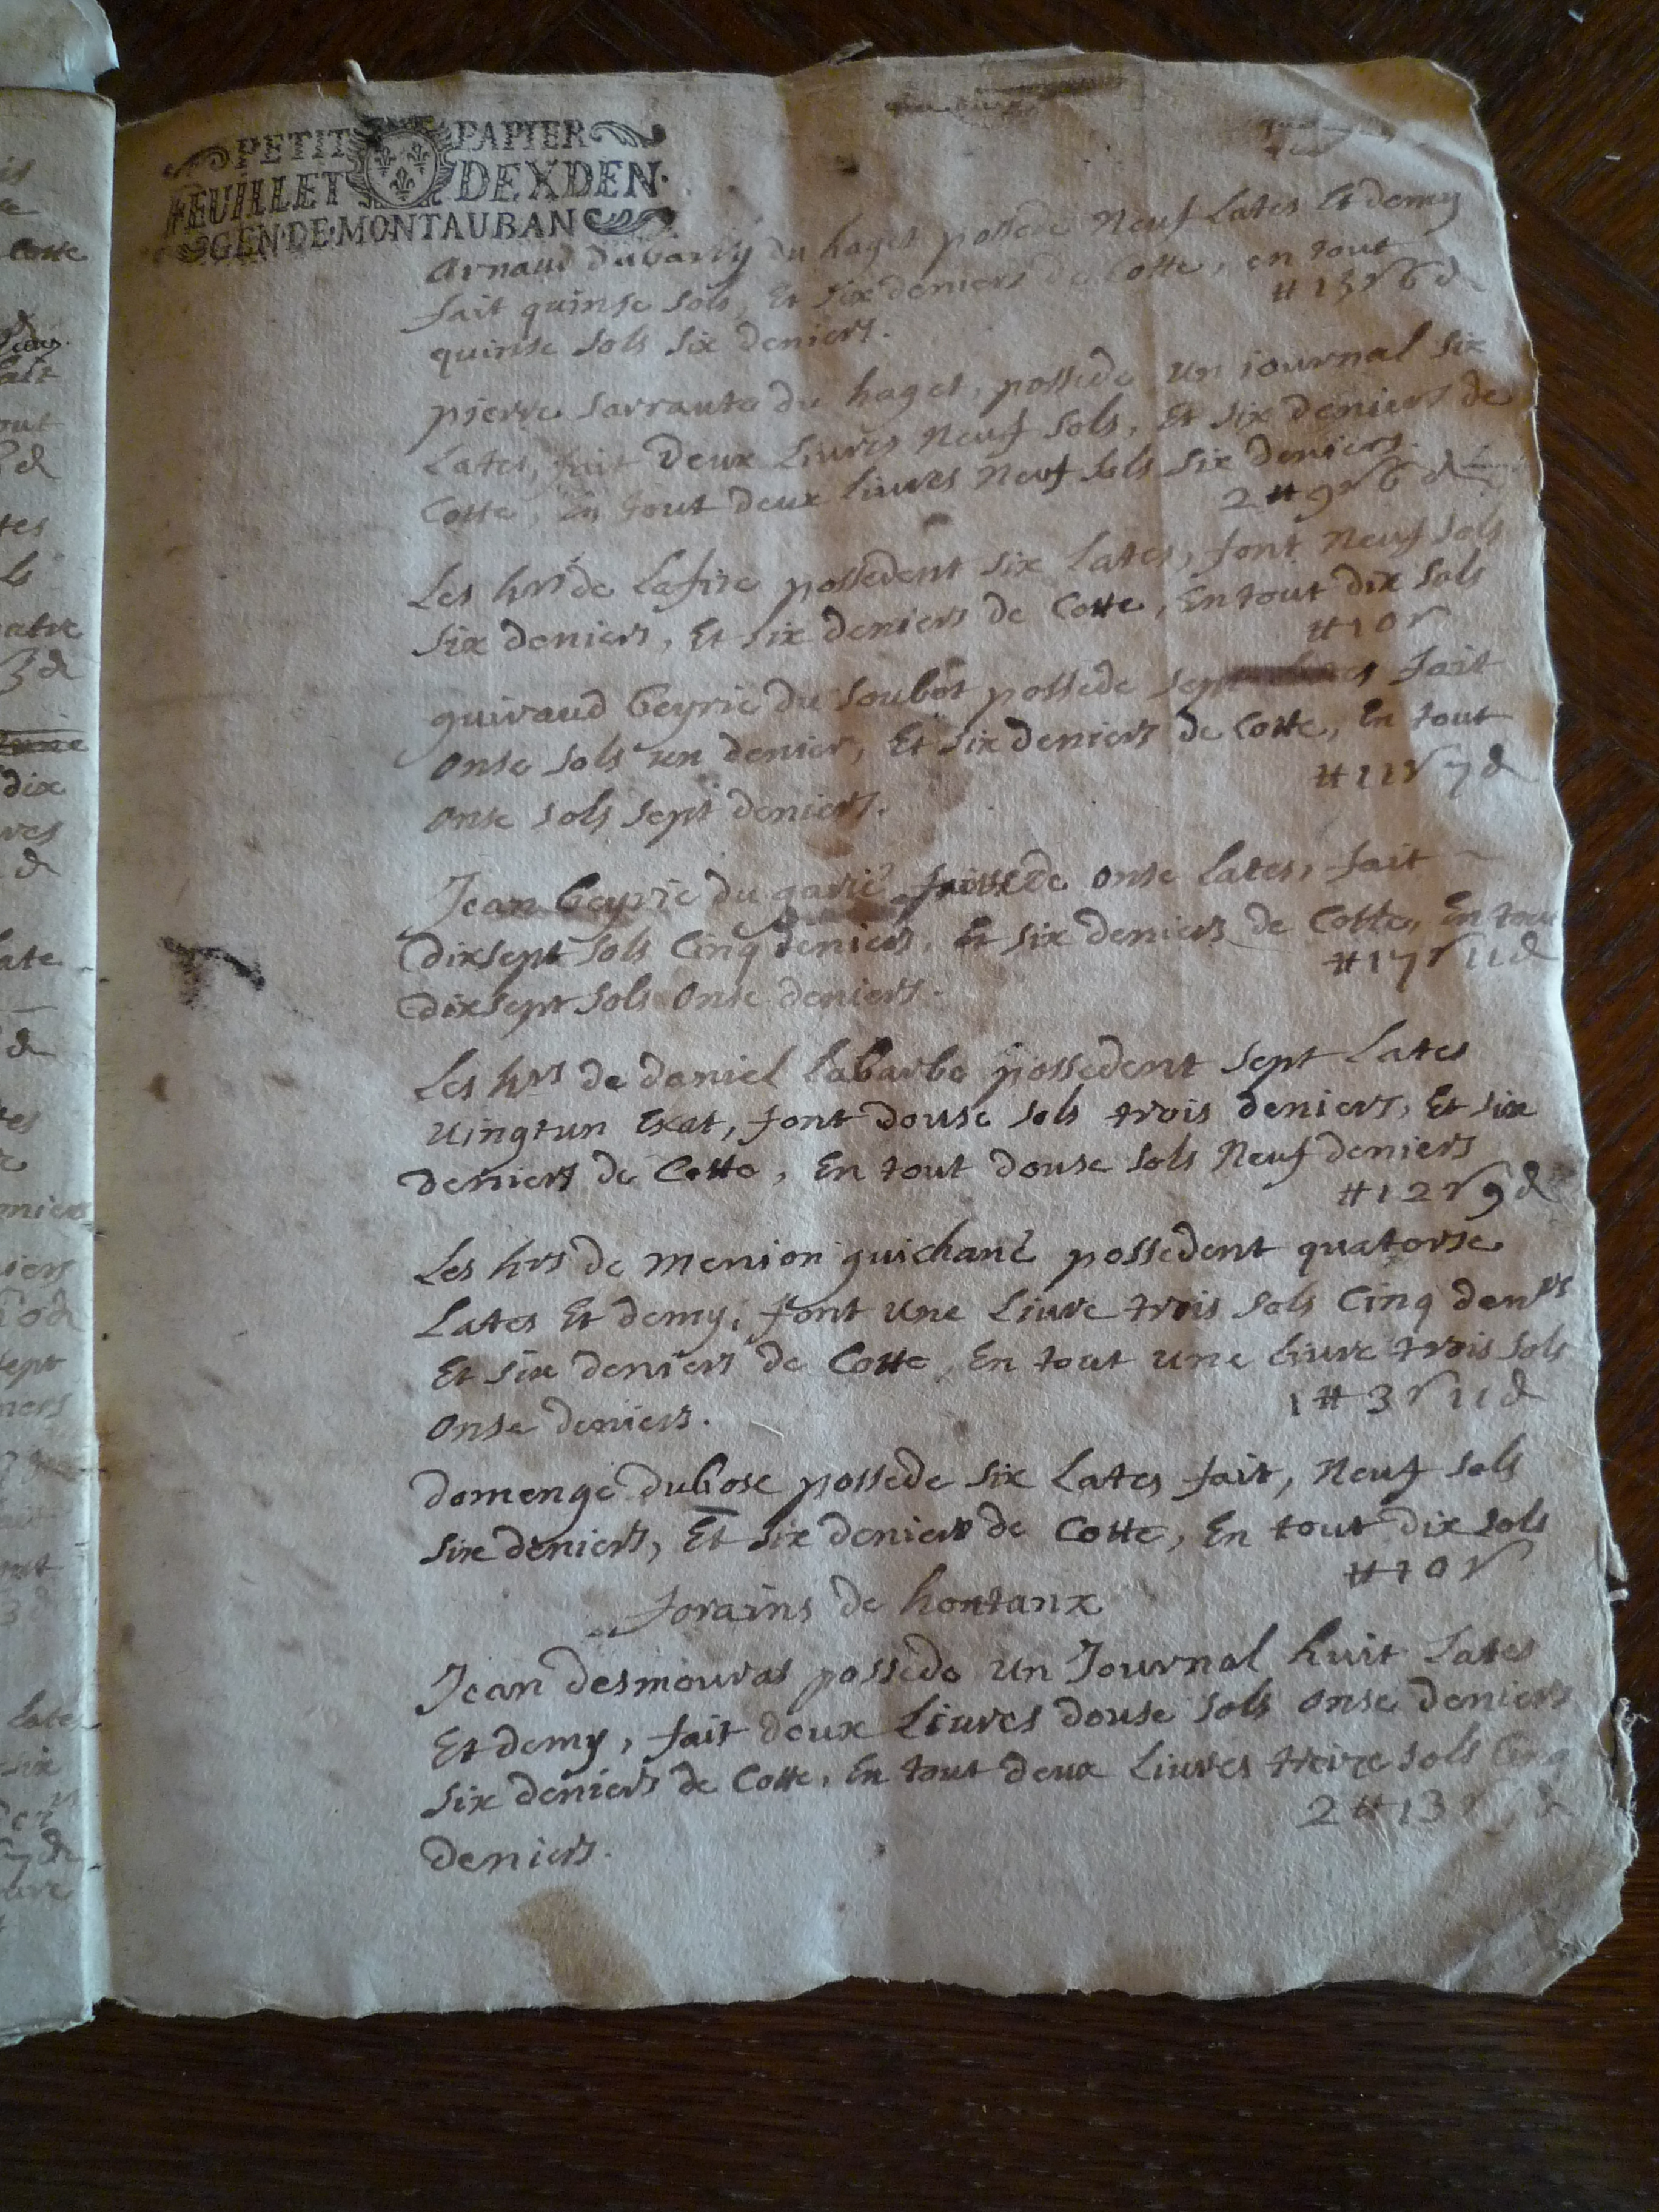 PETIT PAPIER
FEUILLET DEXDEN.
GEN.DE.MONTAUBAN
Arnaud dubarry du haget possede Neuf Lates Et demy
fait quinse sols, Et six deniers de Cotte, en tout
quinse sols six deniers. # 15 s 6 d
pierre Sarraute du haget, possede un iournal six
Lates, fait deux Liures Neuf sols, Et six deniers de
Cotte, En tout deux liures Neuf sols six deniers.
2 # 9 s 6 d
Les hrs de Lafite possedent six Lates, font Neuf sols
six deniers, Et six deniers de Cotte, En tout dix sols
# 10 s
guiraud beyrie du soubot possede sept fait
onse sols un denier, Et six deniers de Cotte, En tout
onse sols sept deniers. # 11 s 7 d
Jean beyrie du garie possede onse lates, fait
dixsept sols Cinq deniers, Et six deniers de Cotte, En tout
dixsept sols onse deniers. # 17 s 11 d
Les hrs de daniel labarbe possedent sept Lates
uingtun Exat, font douse sols trois deniers, Et six
deniers de Cotte, En tout douse sols Neuf deniers
# 12 s 9 d
Les hrs de menion guichané possedent quatorse
Lates Et demy, font une Liure trois sols Cinq denrs
Et six deniers de Cotte, En tout une Liure trois sols
onse deniers. 1 # 3 s 11 d
domenge dubosc possede six Lates fait, Neuf sols
six deniers, Et six deniers de Cotte, En tout dix sols
# 10 s
forains de hontanx
Jean desmouras possede un Journal huit Lates
Et demy, fait deux Liures douse sols onse deniers
six deniers de Cotte, En tout deux Liures treize sols Cinq
deniers. 2 # 13 s 5 d